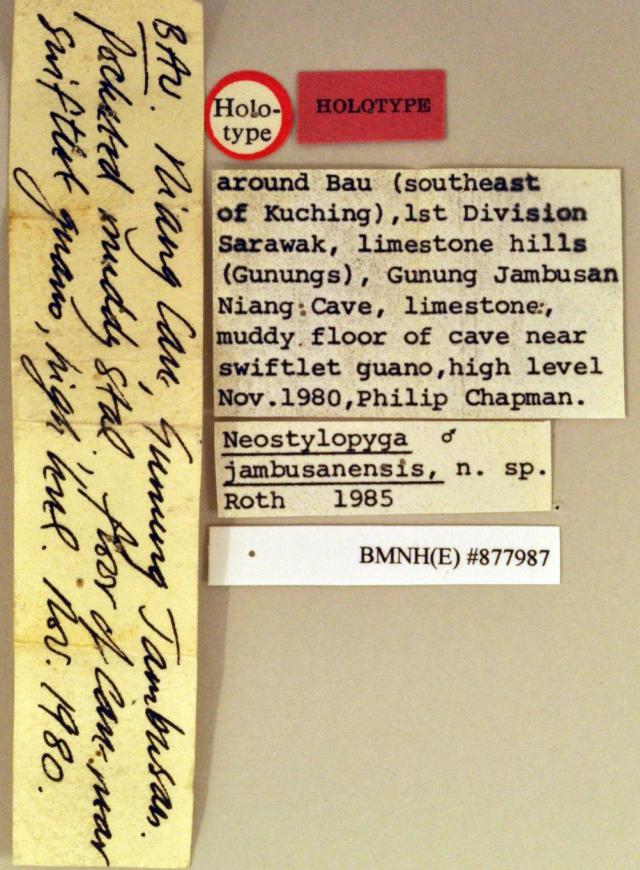 BAU. Niang Cave, Gunung Jambusan.
Pocketed muddy stal., floor of Cave near
swiftlet guano, high level. Nov. 1980.
Holo-
type
HOLOTYPE
around Bau (southeast
of Kuching),1st Division
Sarawak, limestone hills
(Gunungs), Gunung Jambusan
Niang Cave, limestone,
muddy floor of cave near
swiftlet guano,high level
Nov.1980,Philip Chapman.
Neostylopyga ♂
jambusanensis, n. sp.
Roth 1985
BMNH(E) #877987